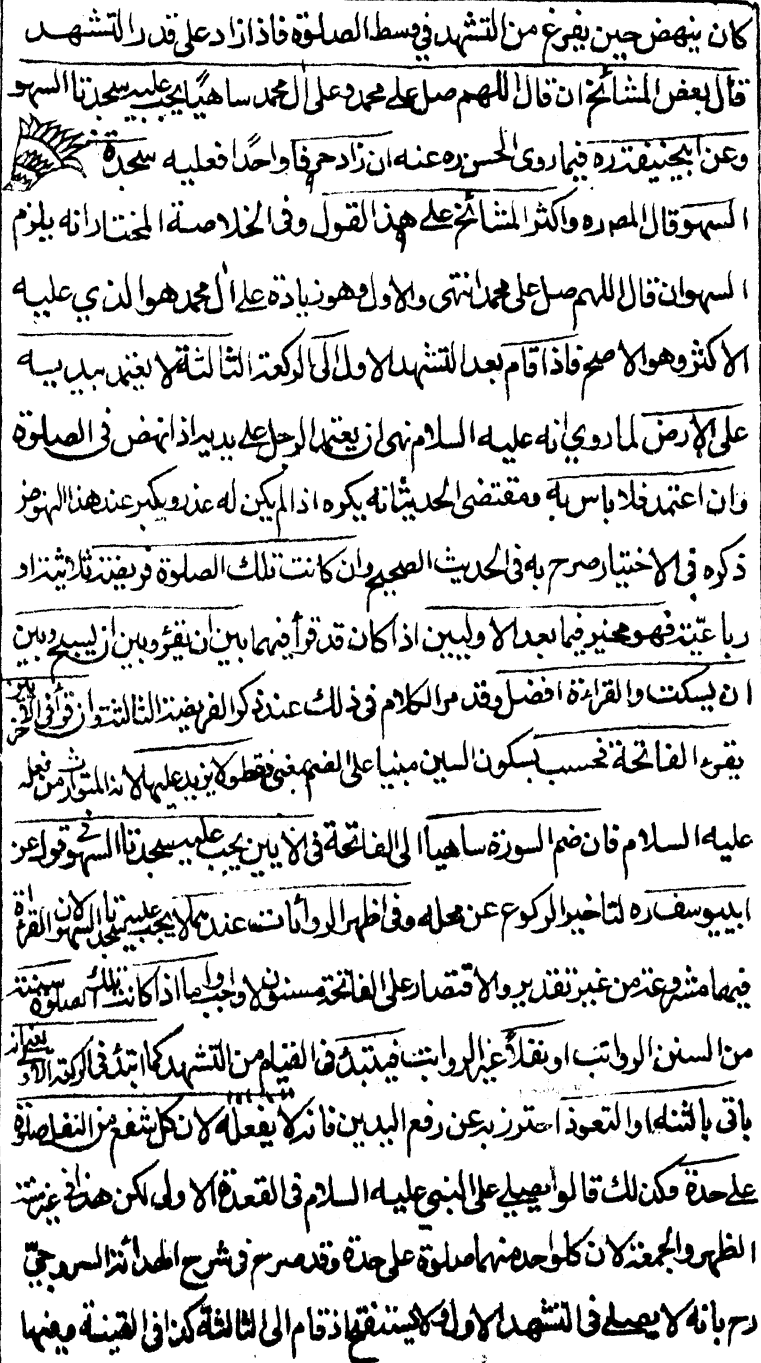 كان ينهض حين يفرغ من التشهد في وسط الصلوة فاذا زاد على قدر التشهد
قال بعض المشائخ ان قال اللهم صل على محمد وعلى آل محمد ساهيًا يجب عليه سجدتا السهو
وعن ابيحنيفة ره فيما روى الحسن ره عنه ان زاد حرفا واحدًا فعليه سجدة
السهو قال المص ره واكثر المشائخ على هذا القول وفى الخلاصة المختار انه يلزم
السهو ان قال اللهم صل على محمد انتهى والاول وهو زيادة على آل محمد هو الذي عليه
الاكثر وهو الاصح فاذا قام بعد التشهد الاول الى الركعة الثالثة لا يعتمد بيديه
على الارض لما روي انه عليه السلام نهى ان يعتمد الرجل على يديه اذا نهض فى الصلوة
وان اعتمد فلا باس به ومقتضى الحديث انه يكره اذا لم يكن له عذر ويكبر عند هذا النهوض
ذكره فى الاختيار صرح به فى الحديث الصحيح وان كانت تلك الصلوة فريضة ثلاثية او
رباعية فهو مخير فيما بعد الاوليين اذا كان قد قرأ فيهما بين ان يقرؤ وبين ان يسبح وبين
ان يسكت والقراءة افضل وقد مر الكلام فى ذلك عند ذكر الفريضة الثالثة وان قرأ فى الاخر
يقرء الفاتحة فحسب بسكون السين مبنيا على الضم بمعنى فقط ولا يزيد عليها لانه المتوارث من فعله
عليه السلام فان ضم السورة ساهيا الى الفاتحة فى الاخريين يجب عليه سجدتا السهو فى قول عن
ابييوسف ره لتاخير الركوع عن محله وفى اظهر الروايات عندهما لا يجب عليه سجدتا السهو لان القراءة
فيهما مشروعة من غير تقدير والاقتصار على الفاتحة مسنون لا واجب واما اذا كانت تلك الصلوة سنة
من السنن الرواتب او نفلاً غير الرواتب فيبتدئ فى القيام من التشهد كما ابتدئ فى الركعة الاولى يعنى انه
ياتى بالثناء والتعوذ احترز به عن رفع اليدين فانه لا يفعله لان كل شفع من النفل صلوة
على حدة وكذلك قالوا يصلى على النبي عليه السلام فى القعدة الاولى لكن هذا فى غير سنة
الظهر والجمعة لان كلواحد منهما صلوة على حدة وقد صرح فى شرح الهداية السروجي
رح بانه لا يصلى فى التشهد الاول ولا يستفتح اذ قام الى الثالثة كذا فى القنية ومنها